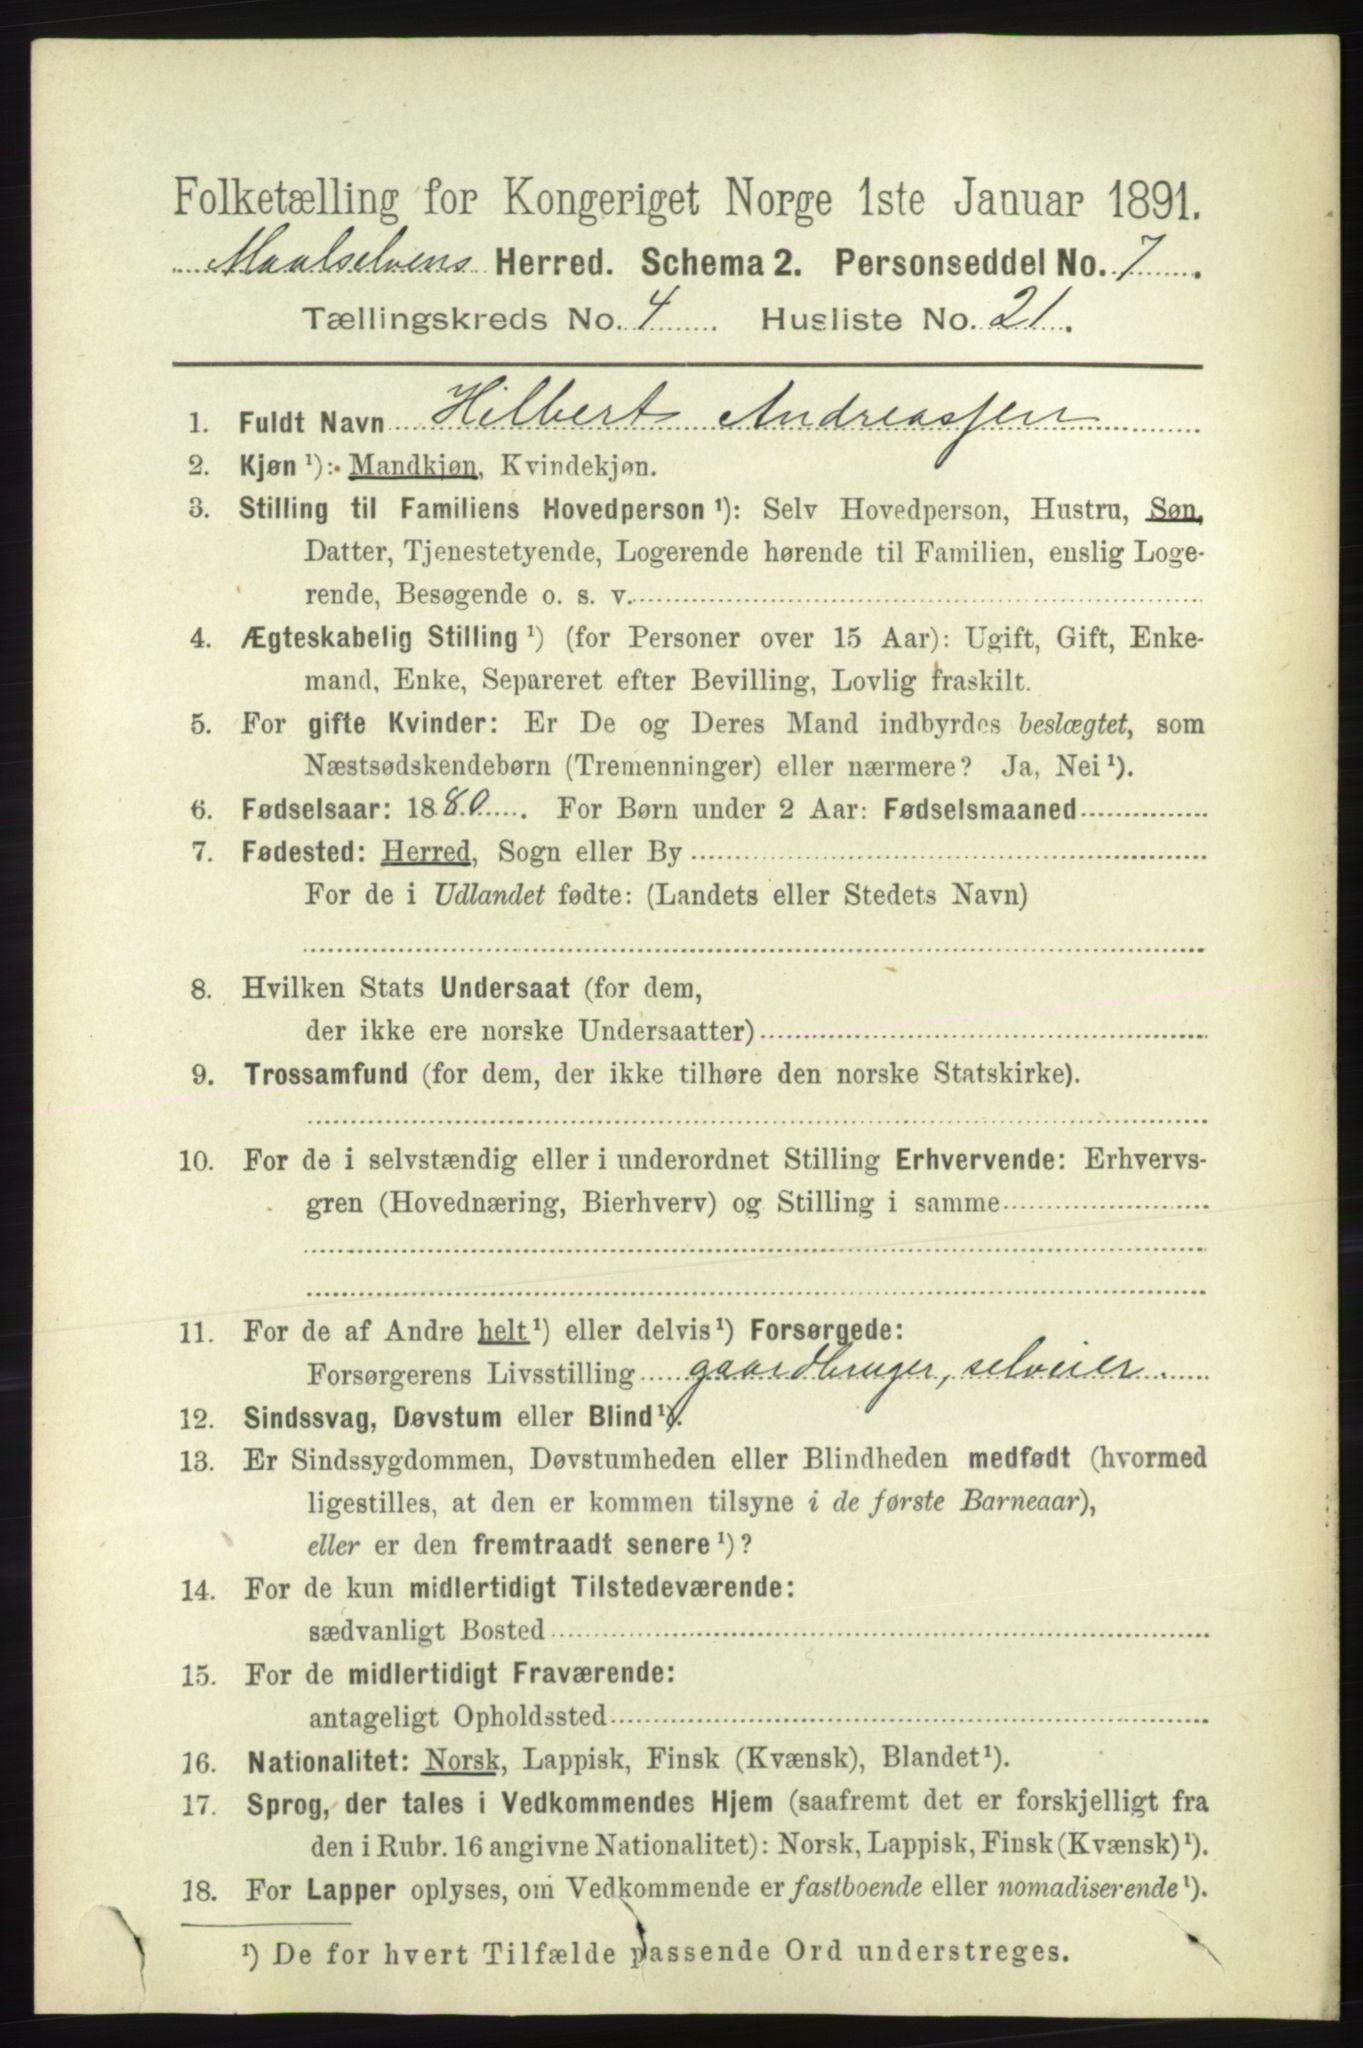 Folketælling for Kongeriget Norge 1ste Januar 1891.
Maalselvens Herred. Schema 2. Personseddel No. 7.
Tællingskreds No. 4 Husliste No. 21.
1. Fuldt Navn Hilbert Andreassen
2. Kjøn ¹): Mandkjøn, Kvindekjøn.
3. Stilling til Familiens Hovedperson ¹): Selv Hovedperson, Hustru, Søn,
Datter, Tjenestetyende, Logerende hørende til Familien, enslig Loge-
rende, Besøgende o. s. v.
4. Ægteskabelig Stilling ¹) (for Personer over 15 Aar): Ugift, Gift, Enke-
mand, Enke, Separeret efter Bevilling, Lovlig fraskilt.
5. For gifte Kvinder: Er De og Deres Mand indbyrdes beslægtet, som
Næstsødskendebørn (Tremenninger) eller nærmere? Ja, Nei ¹).
6. Fødselsaar: 1880. For Børn under 2 Aar: Fødselsmaaned
7. Fødested: Herred, Sogn eller By
For de i Udlandet fødte: (Landets eller Stedets Navn)
8. Hvilken Stats Undersaat (for dem,
der ikke ere norske Undersaatter)
9. Trossamfund (for dem, der ikke tilhøre den norske Statskirke).
10. For de i selvstændig eller i underordnet Stilling Erhvervende: Erhvervs-
gren (Hovednæring, Bierhverv) og Stilling i samme
11. For de af Andre helt ¹) eller delvis ¹) Forsørgede:
Forsørgerens Livsstilling gaardbruger, selveier.
12. Sindssvag, Døvstum eller Blind ¹).
13. Er Sindssygdommen, Døvstumheden eller Blindheden medfødt (hvormed
ligestilles, at den er kommen tilsyne i de første Barneaar),
eller er den fremtraadt senere ¹)?
14. For de kun midlertidigt Tilstedeværende:
sædvanligt Bosted
15. For de midlertidigt Fraværende:
antageligt Opholdssted
16. Nationalitet: Norsk, Lappisk, Finsk (Kvænsk), Blandet ¹).
17. Sprog, der tales i Vedkommendes Hjem (saafremt det er forskjelligt fra
den i Rubr. 16 angivne Nationalitet): Norsk, Lappisk, Finsk (Kvænsk) ¹).
18. For Lapper oplyses, om Vedkommende er fastboende eller nomadiserende ¹).
¹) De for hvert Tilfælde passende Ord understreges.